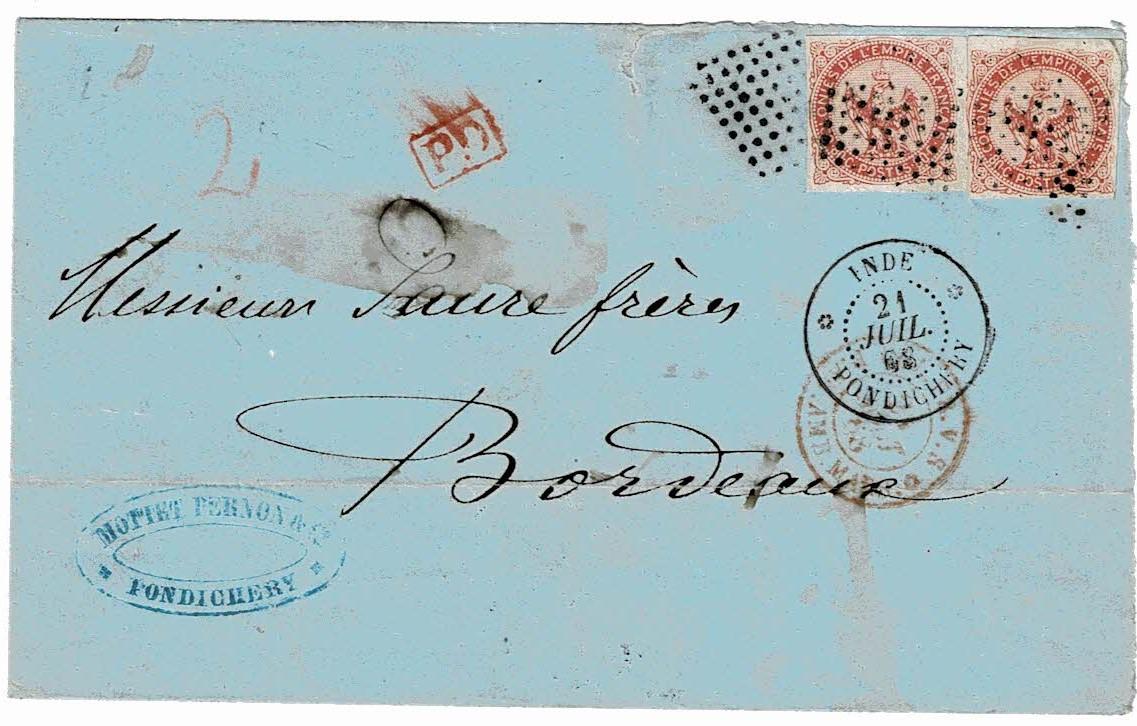 COLONIES DE L'EMPIRE FRANÇAIS
POSTES
COLONIES DE L'EMPIRE FRANÇAIS
POSTES
2
P.D.
INDE
21
JUIL.
68
PONDICHERY
Messieurs Faure frères
Bordeaux
PERNON & Cie
PONDICHERY